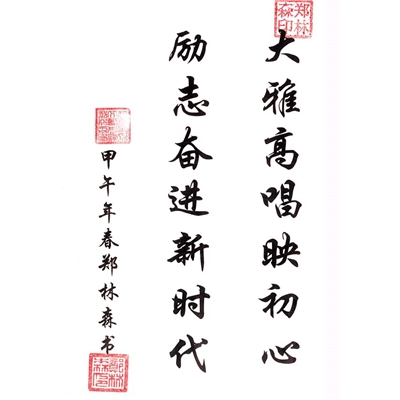 大雅高唱映初心
励志奋进新时代
甲午年春郑林森书
郑林
森印